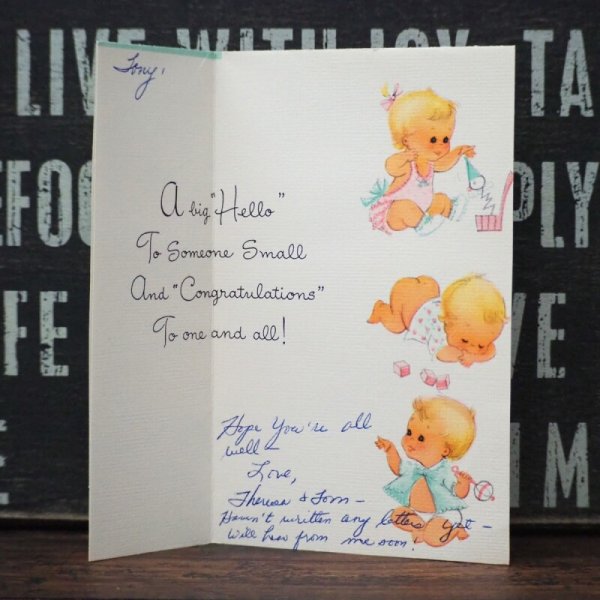 LIVE WITH JOY, TA
EFO
PLY
FE
VE
M
Tony,
A big "Hello"
To Someone Small
And "Congratulations"
To one and all!
Hope You're all
well –
Love,
Theresa & Tom –
Haven't written any letters yet –
will hear from me soon!